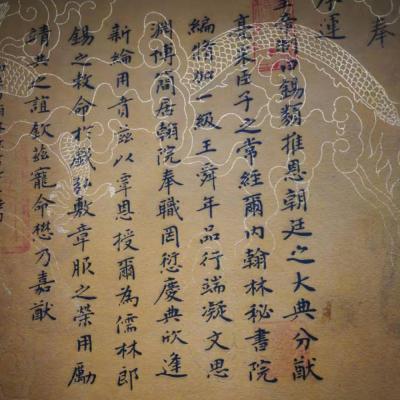 奉
承運
皇帝制曰錫類推恩朝廷之大典分猷
亮采臣子之常經爾內翰林秘書院
編脩加一級王舜年品行端凝文思
淵博簡居翰院奉職罔愆慶典欣逢
新綸用賁茲以覃恩授爾為儒林郎
錫之敕命於戲弘敷章服之榮用勵
靖共之誼欽茲寵命懋乃嘉猷